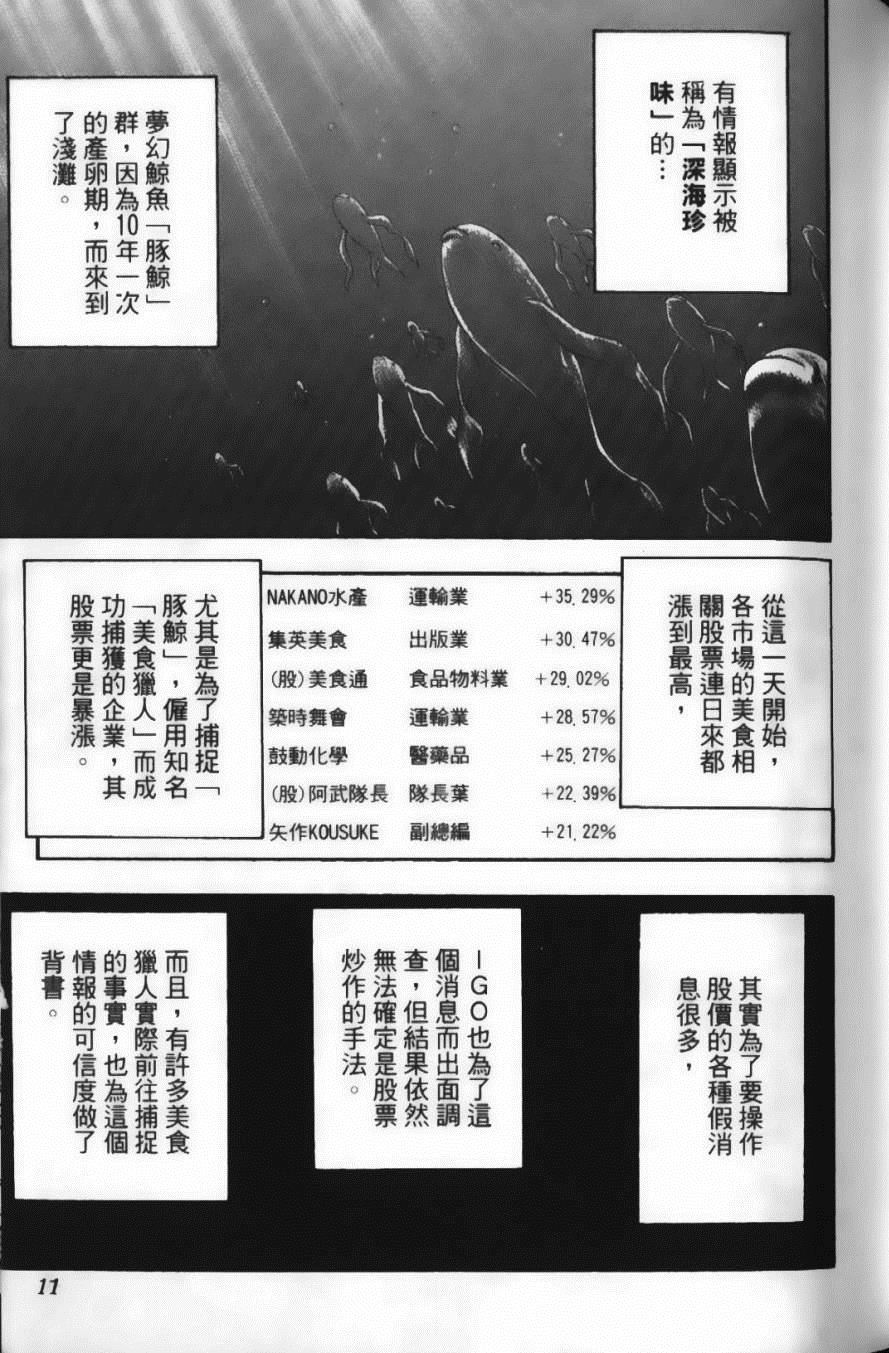 有情報顯示被
稱為「深海珍
味」的…
夢幻鯨魚「豚鯨」
群，因為10年一次
的產卵期，而來到
了淺灘。
從這一天開始，
各市場的美食相
關股票連日來都
漲到最高，
NAKANO水產 運輸業 +35.29%
集英美食 出版業 +30.47%
(股)美食通 食品物料業 +29.02%
築時舞會 運輸業 +28.57%
鼓動化學 醫藥品 +25.27%
(股)阿武隊長 隊長葉 +22.39%
矢作KOUSUKE 副總編 +21.22%
尤其是為了捕捉「
豚鯨」，僱用知名
「美食獵人」而成
功捕獲的企業，其
股票更是暴漲。
其實為了要操作
股價的各種假消
息很多，
IGO也為了這
個消息而出面調
查，但結果依然
無法確定是股票
炒作的手法。
而且，有許多美食
獵人實際前往捕捉
的事實，也為這個
情報的可信度做了
背書。
11